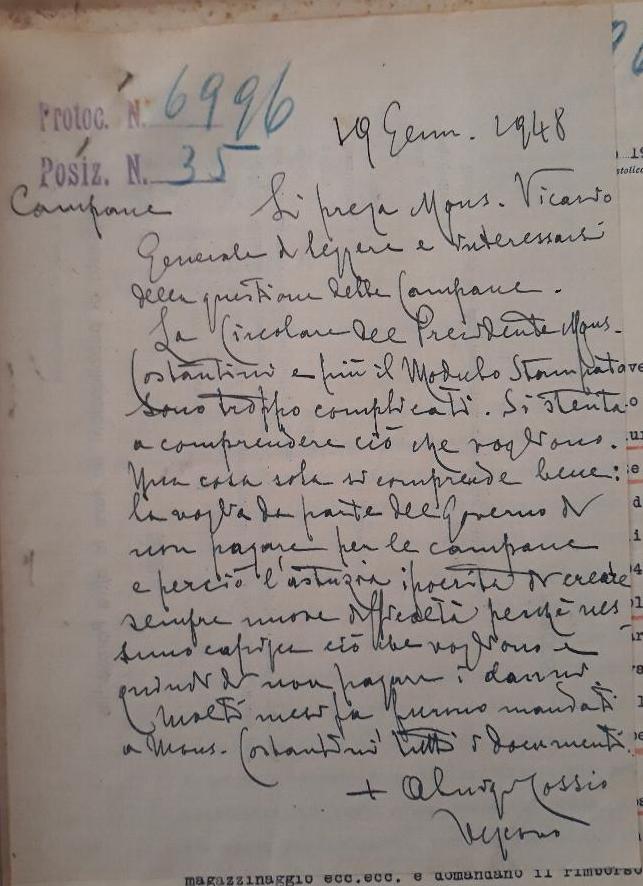 Protoc. N. 6996
Posiz. N. 35
19 Genn. 1948
Campane
Si prega Mons. Vicario
Generale di leggere e interessarsi
della questione delle Campane.
La Circolare del Presidente Mons.
Costantini e più il Modulo Stampato
sono troppo complicati. Si stenta
a comprendere ciò che vogliono.
Una cosa sola si comprende bene:
la voglia da parte del Governo di
non pagare per le campane
e perciò l'astuzia ipocrita di creare
sempre nuove difficoltà perchè nes
suno capisca ciò che vogliono e
quindi di non pagare i danni.
Molti mesi fa furono mandati
a Mons. Costantini tutti i documenti.
+ Aluigi Cossio
Vescovo
magazzinaggio ecc.ecc. e domandano il rimborso